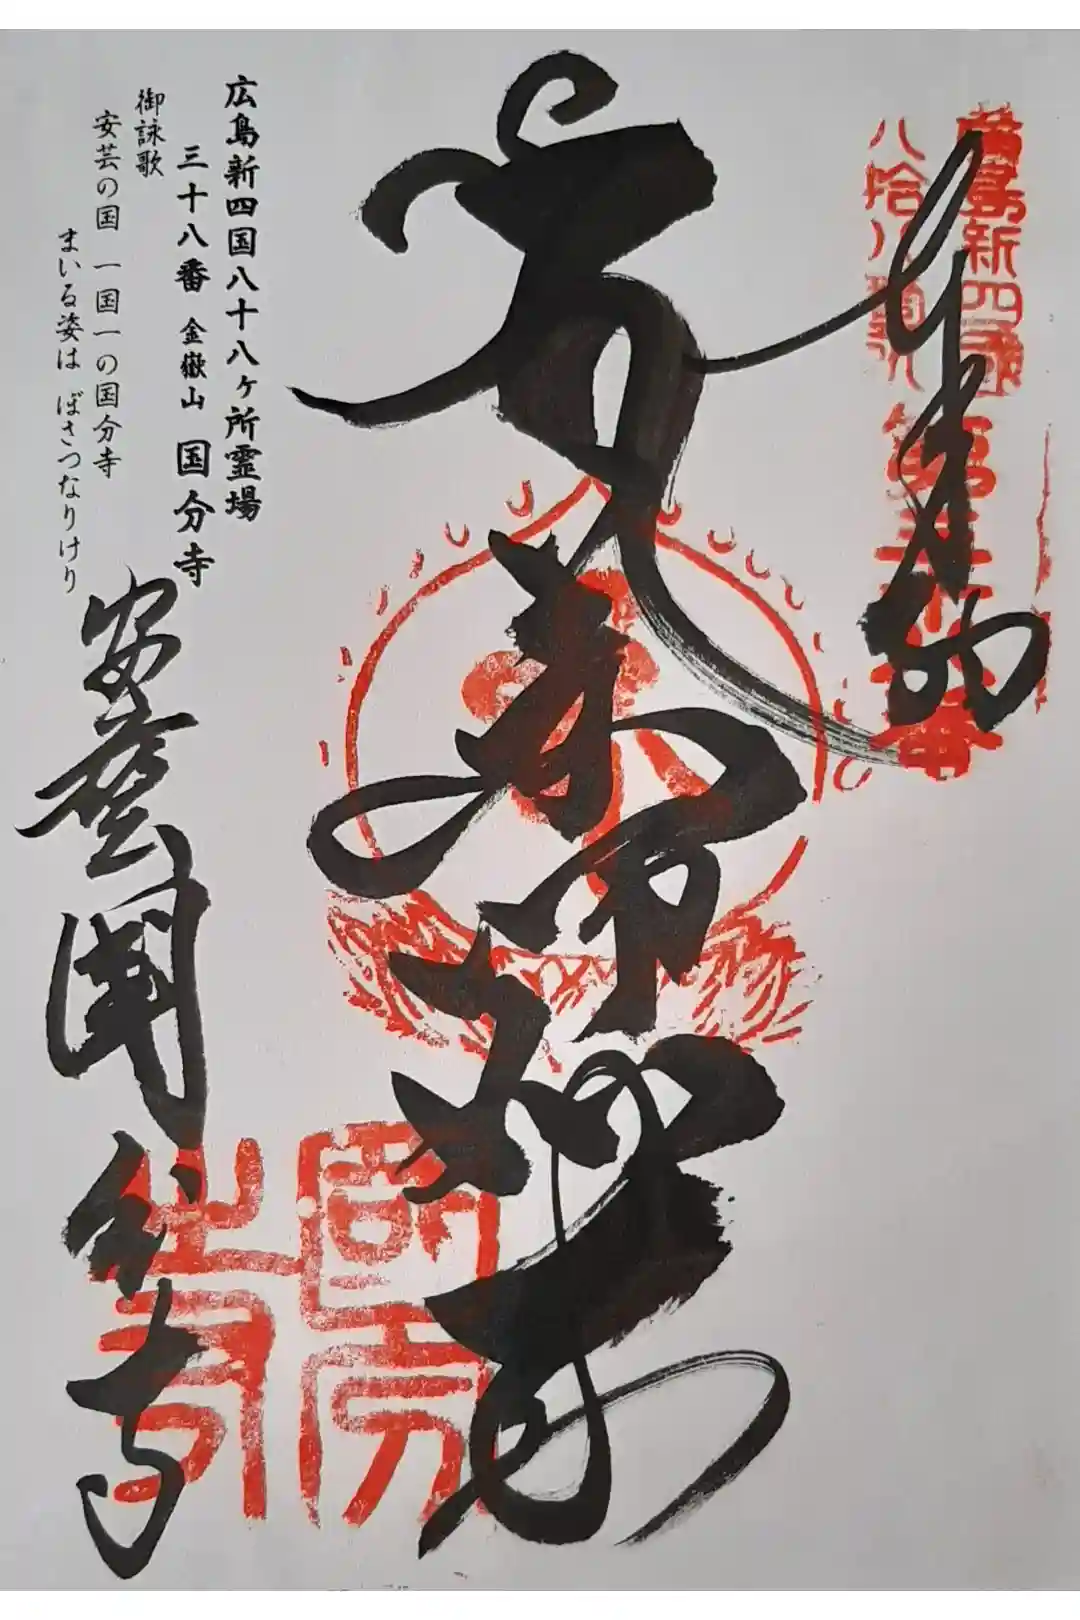 奉納
廣島新四國
八拾八箇所
第三十八番
薬師如来
広島新四国八十八ヶ所霊場
三十八番 金嶽山 国分寺
御詠歌
安芸の国 一国一の国分寺
まいる姿は ぼさつなりけり
安藝國分寺
國分寺